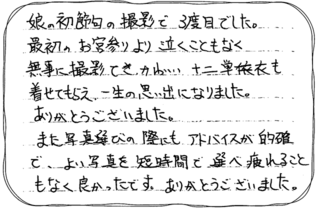 娘の初節句の撮影で3度目でした。
最初のお宮参りより泣くこともなく
無事に撮影でき、かわいい十二単衣も
着せてもらえ、一生の思い出になりました。
ありがとうございました。
また写真選びの際にもアドバイスが的確
で、よい写真を短時間で選べ疲れること
もなく良かったです。ありがとうございました。